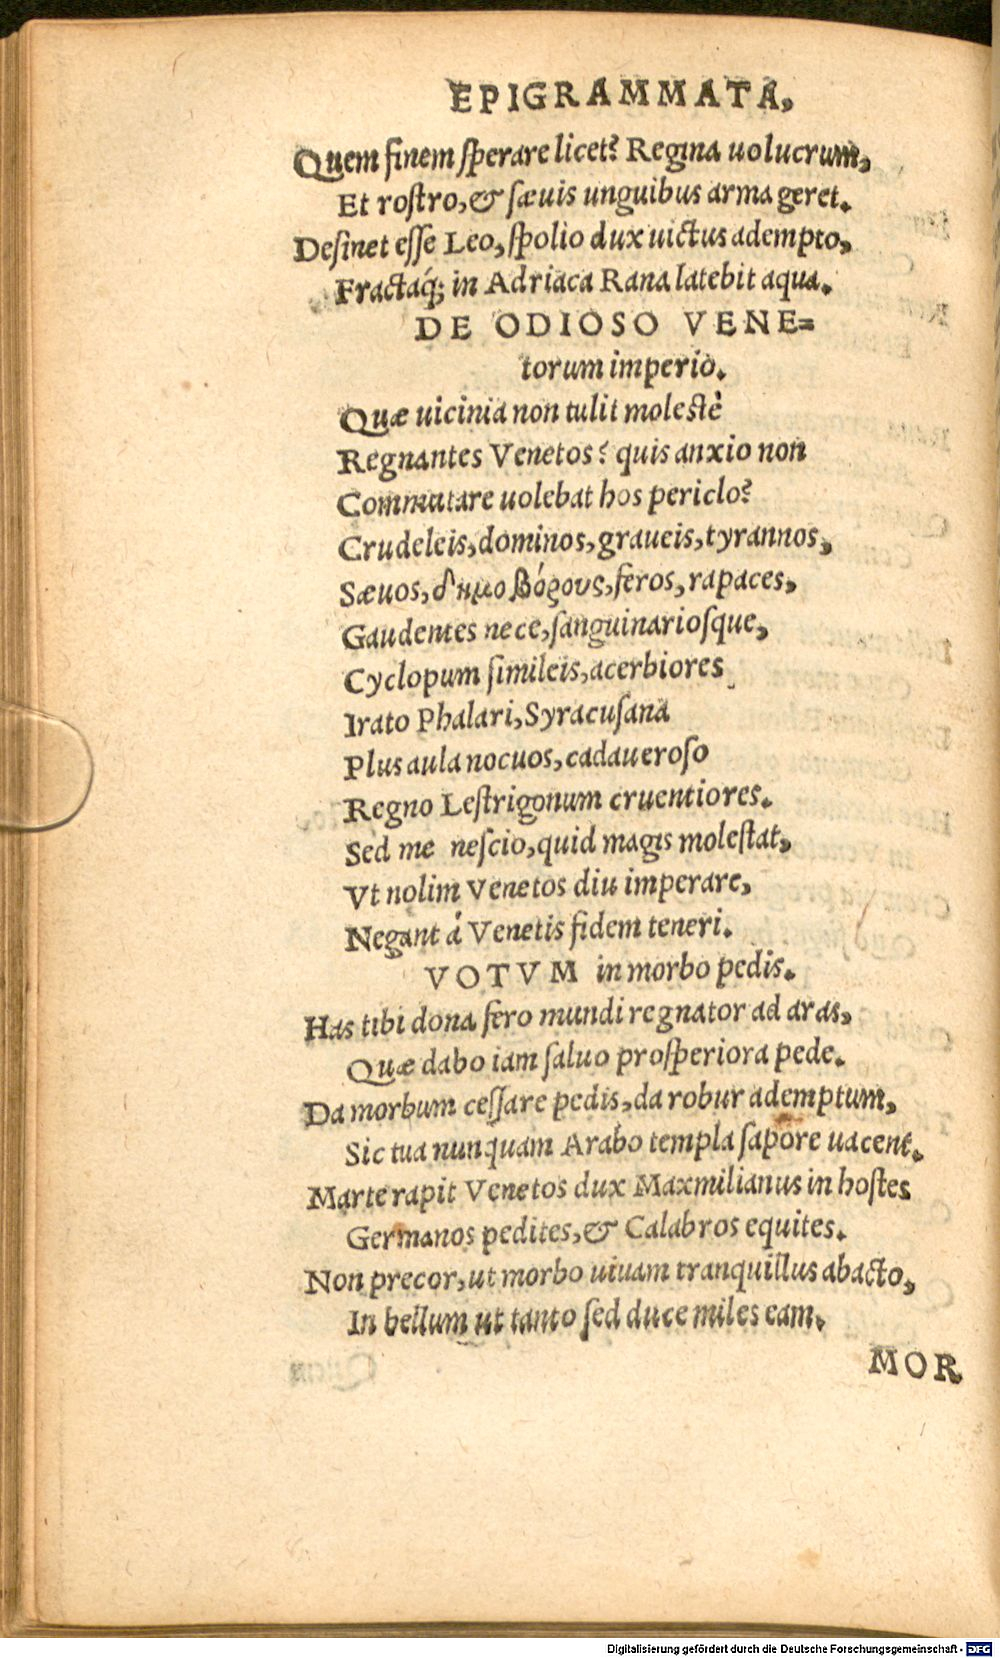 EPIGRAMMATA,
Quem finem sperare licet? Regina uolucrum,
Et rostro, & sæuis unguibus arma geret.
Desinet esse Leo, spolio dux uictus adempto,
Fractaq́; in Adriaca Rana latebit aqua.
DE ODIOSO VENE=
torum imperio.
Quæ uicinia non tulit molestè
Regnantes Venetos? quis anxio non
Commutare uolebat hos periclo?
Crudeleis, dominos, graueis, tyrannos,
Sæuos, δημοβόρους, feros, rapaces,
Gaudentes nece, sanguinariosque,
Cyclopum simileis, acerbiores
Irato Phalari, Syracusana
Plus aula nocuos, cadaueroso
Regno Lestrigonum cruentiores.
Sed me nescio, quid magis molestat,
Vt nolim Venetos diu imperare,
Negant á Venetis fidem teneri.
VOTVM in morbo pedis.
Has tibi dona fero mundi regnator ad aras,
Quæ dabo iam saluo prosperiora pede.
Da morbum cessare pedis, da robur ademptum,
Sic tua nunquam Arabo templa sapore uacent.
Marte rapit Venetos dux Maxmilianus in hostes
Germanos pedites, & Calabros equites.
Non precor, ut morbo uiuam tranquillus abacto,
In bellum ut tanto sed duce miles eam.
MOR
Digitalisierung gefördert durch die Deutsche Forschungsgemeinschaft - DFG